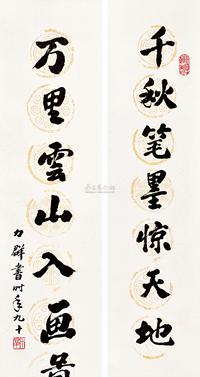 千秋笔墨惊天地
万里雲山入画图
力群書时年九十